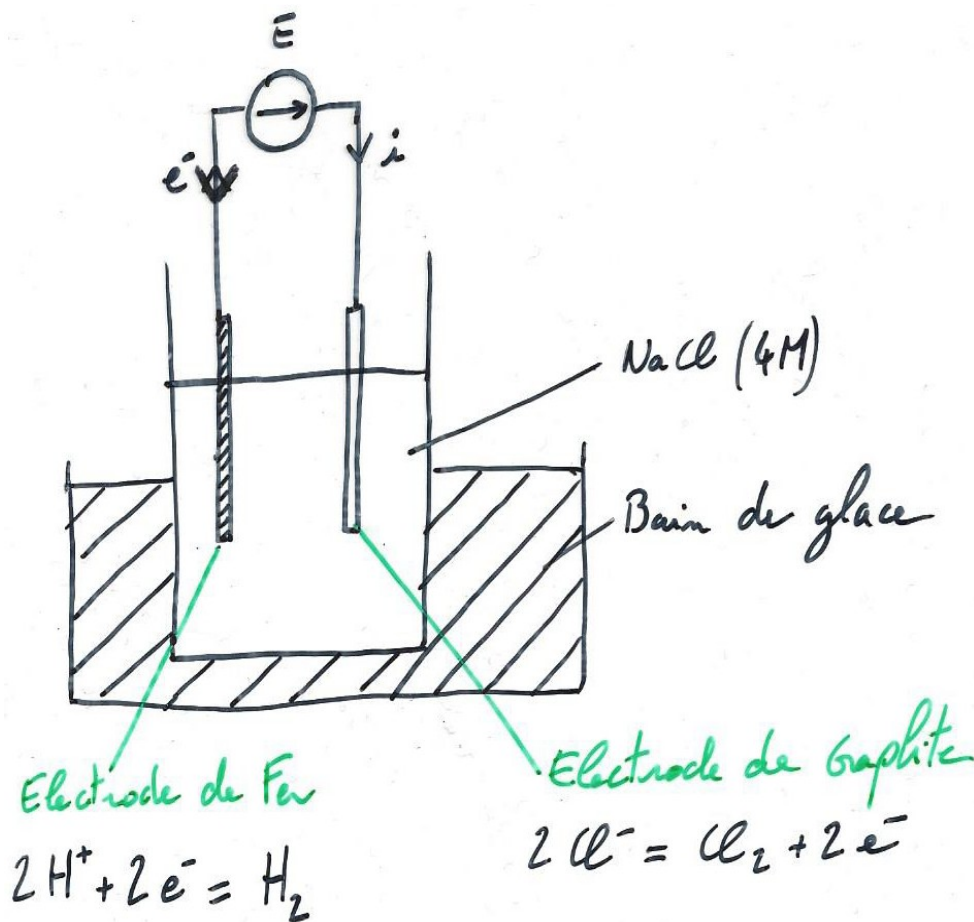 E
e⁻
i
NaCl (4M)
Bain de glace
Electrode de Fer
2H⁺ + 2e⁻ = H₂
Electrode de Graphite
2Cl⁻ = Cl₂ + 2e⁻